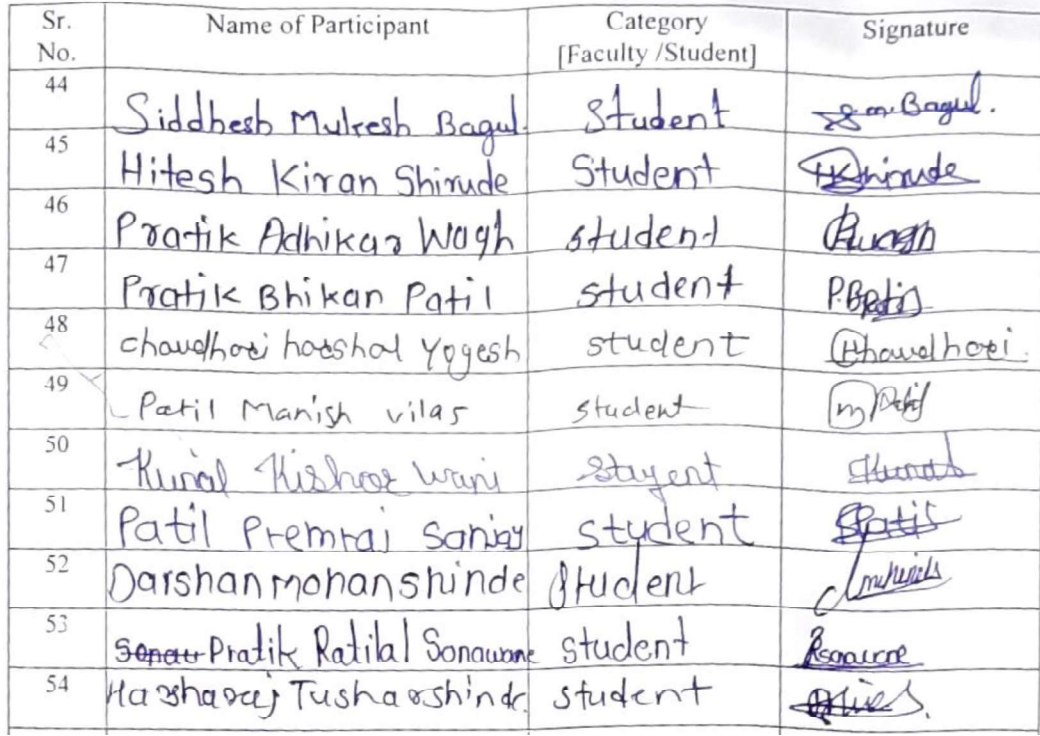 Sr. No. Name of Participant Category [Faculty /Student] Signature
44 Siddhesh Mukesh Bagul. Student S.m.Bagul.
45 Hitesh Kiran Shirude Student HKShirude
46 Pratik Adhikar Wagh student
47 Pratik Bhikan Patil student P.BPatil
48 chaudhari harshal Yogesh student Chaudhari.
49 Patil Manish vilas student
50 Kunal Kishor wani stuyent Kunal
51 Patil Premraj Sanjay student SPatil
52 Darshan mohan shinde Student
53 Pratik Ratilal Sonawane student
54 Harsharaj Tushar shinde. student